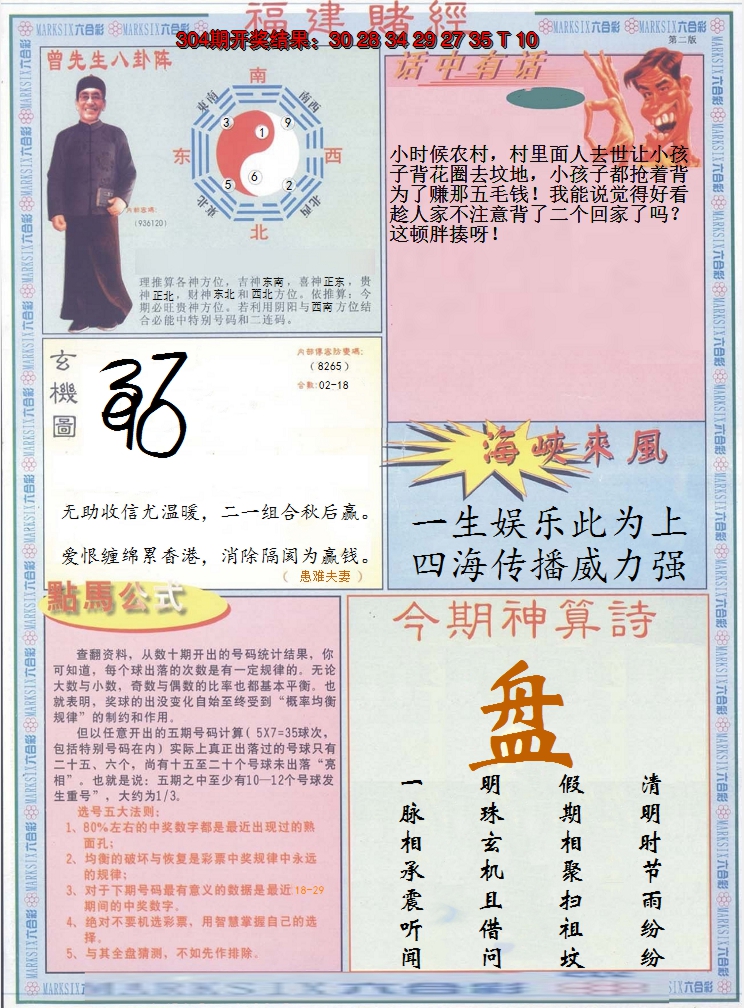 福建賭經
MARKSIX六合彩
304期开奖结果：30 28 34 29 27 35 T 10
第二版
曾先生八卦阵
南
東南
南西
3
1
9
东
西
5
6
2
東北
北西
北
内部密碼:
(936120)
理推算各神方位，吉神东南，喜神正东，贵
神正北，财神东北和西北方位。依推算：今
期必旺贵神方位。若利用阴阳与西南方位结
合必能中特别号码和二连码。
话中有话
小时候农村，村里面人去世让小孩
子背花圈去坟地，小孩子都抢着背
为了赚那五毛钱！我能说觉得好看
趁人家不注意背了二个回家了吗？
这顿胖揍呀！
玄機圖
(8265)
合数:02-18
无助收信尤温暖，二一组合秋后赢。
爱恨缠绵累香港，消除隔阂为赢钱。
（ 患难夫妻 ）
海峽來風
一生娱乐此为上
四海传播威力强
點馬公式
查翻资料，从数十期开出的号码统计结果，你
可知道，每个球出落的次数是有一定规律的。无论
大数与小数，奇数与偶数的比率也都基本平衡。也
就表明，奖球的出没变化自始至终受到“概率均衡
规律”的制约和作用。
但以任意开出的五期号码计算( 5X7=35球次，
包括特别号码在内) 实际上真正出落过的号球只有
二十五、六个，尚有十五至二十个号球未出落“亮
相”。也就是说：五期之中至少有10—12个号球发
生重号”，大约为1/3。
选号五大法则:
1、80%左右的中奖数字都是最近出现过的熟
面孔；
2、均衡的破坏与恢复是彩票中奖规律中永远
的规律；
3、对于下期号码最有意义的数据是最近18-29
期间的中奖数字。
4、绝对不要机选彩票，用智慧掌握自己的选
择。
5、与其全盘猜测，不如先作排除。
今期神算詩
盘
清明时节雨纷纷
假期相聚扫祖坟
明珠玄机且借问
一脉相承震听闻